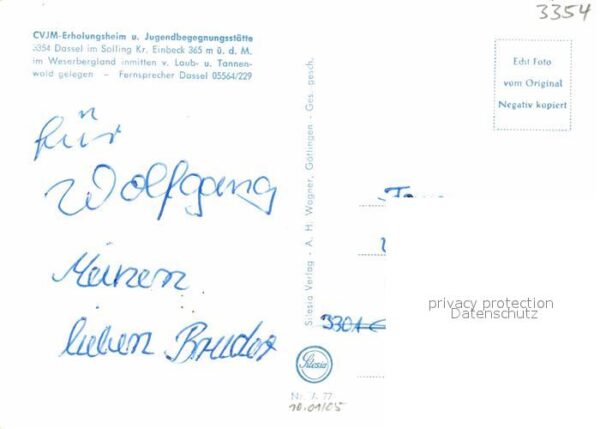 3354
CVJM-Erholungsheim u. Jugendbegegnungsstätte
3354 Dassel im Solling Kr. Einbeck 365 m ü. d. M.
im Weserbergland inmitten v. Laub- u. Tannen-
wald gelegen – Fernsprecher Dassel 05564/229
Echt Foto
vom Original
Negativ kopiert
für
Wolfgang
Meinen
lieben Bruder
Silesia Verlag - A. H. Wagner, Göttingen - Ges. gesch.
3301
privacy protection
Datenschutz
Silesia
Nr. A 77
10.01/05